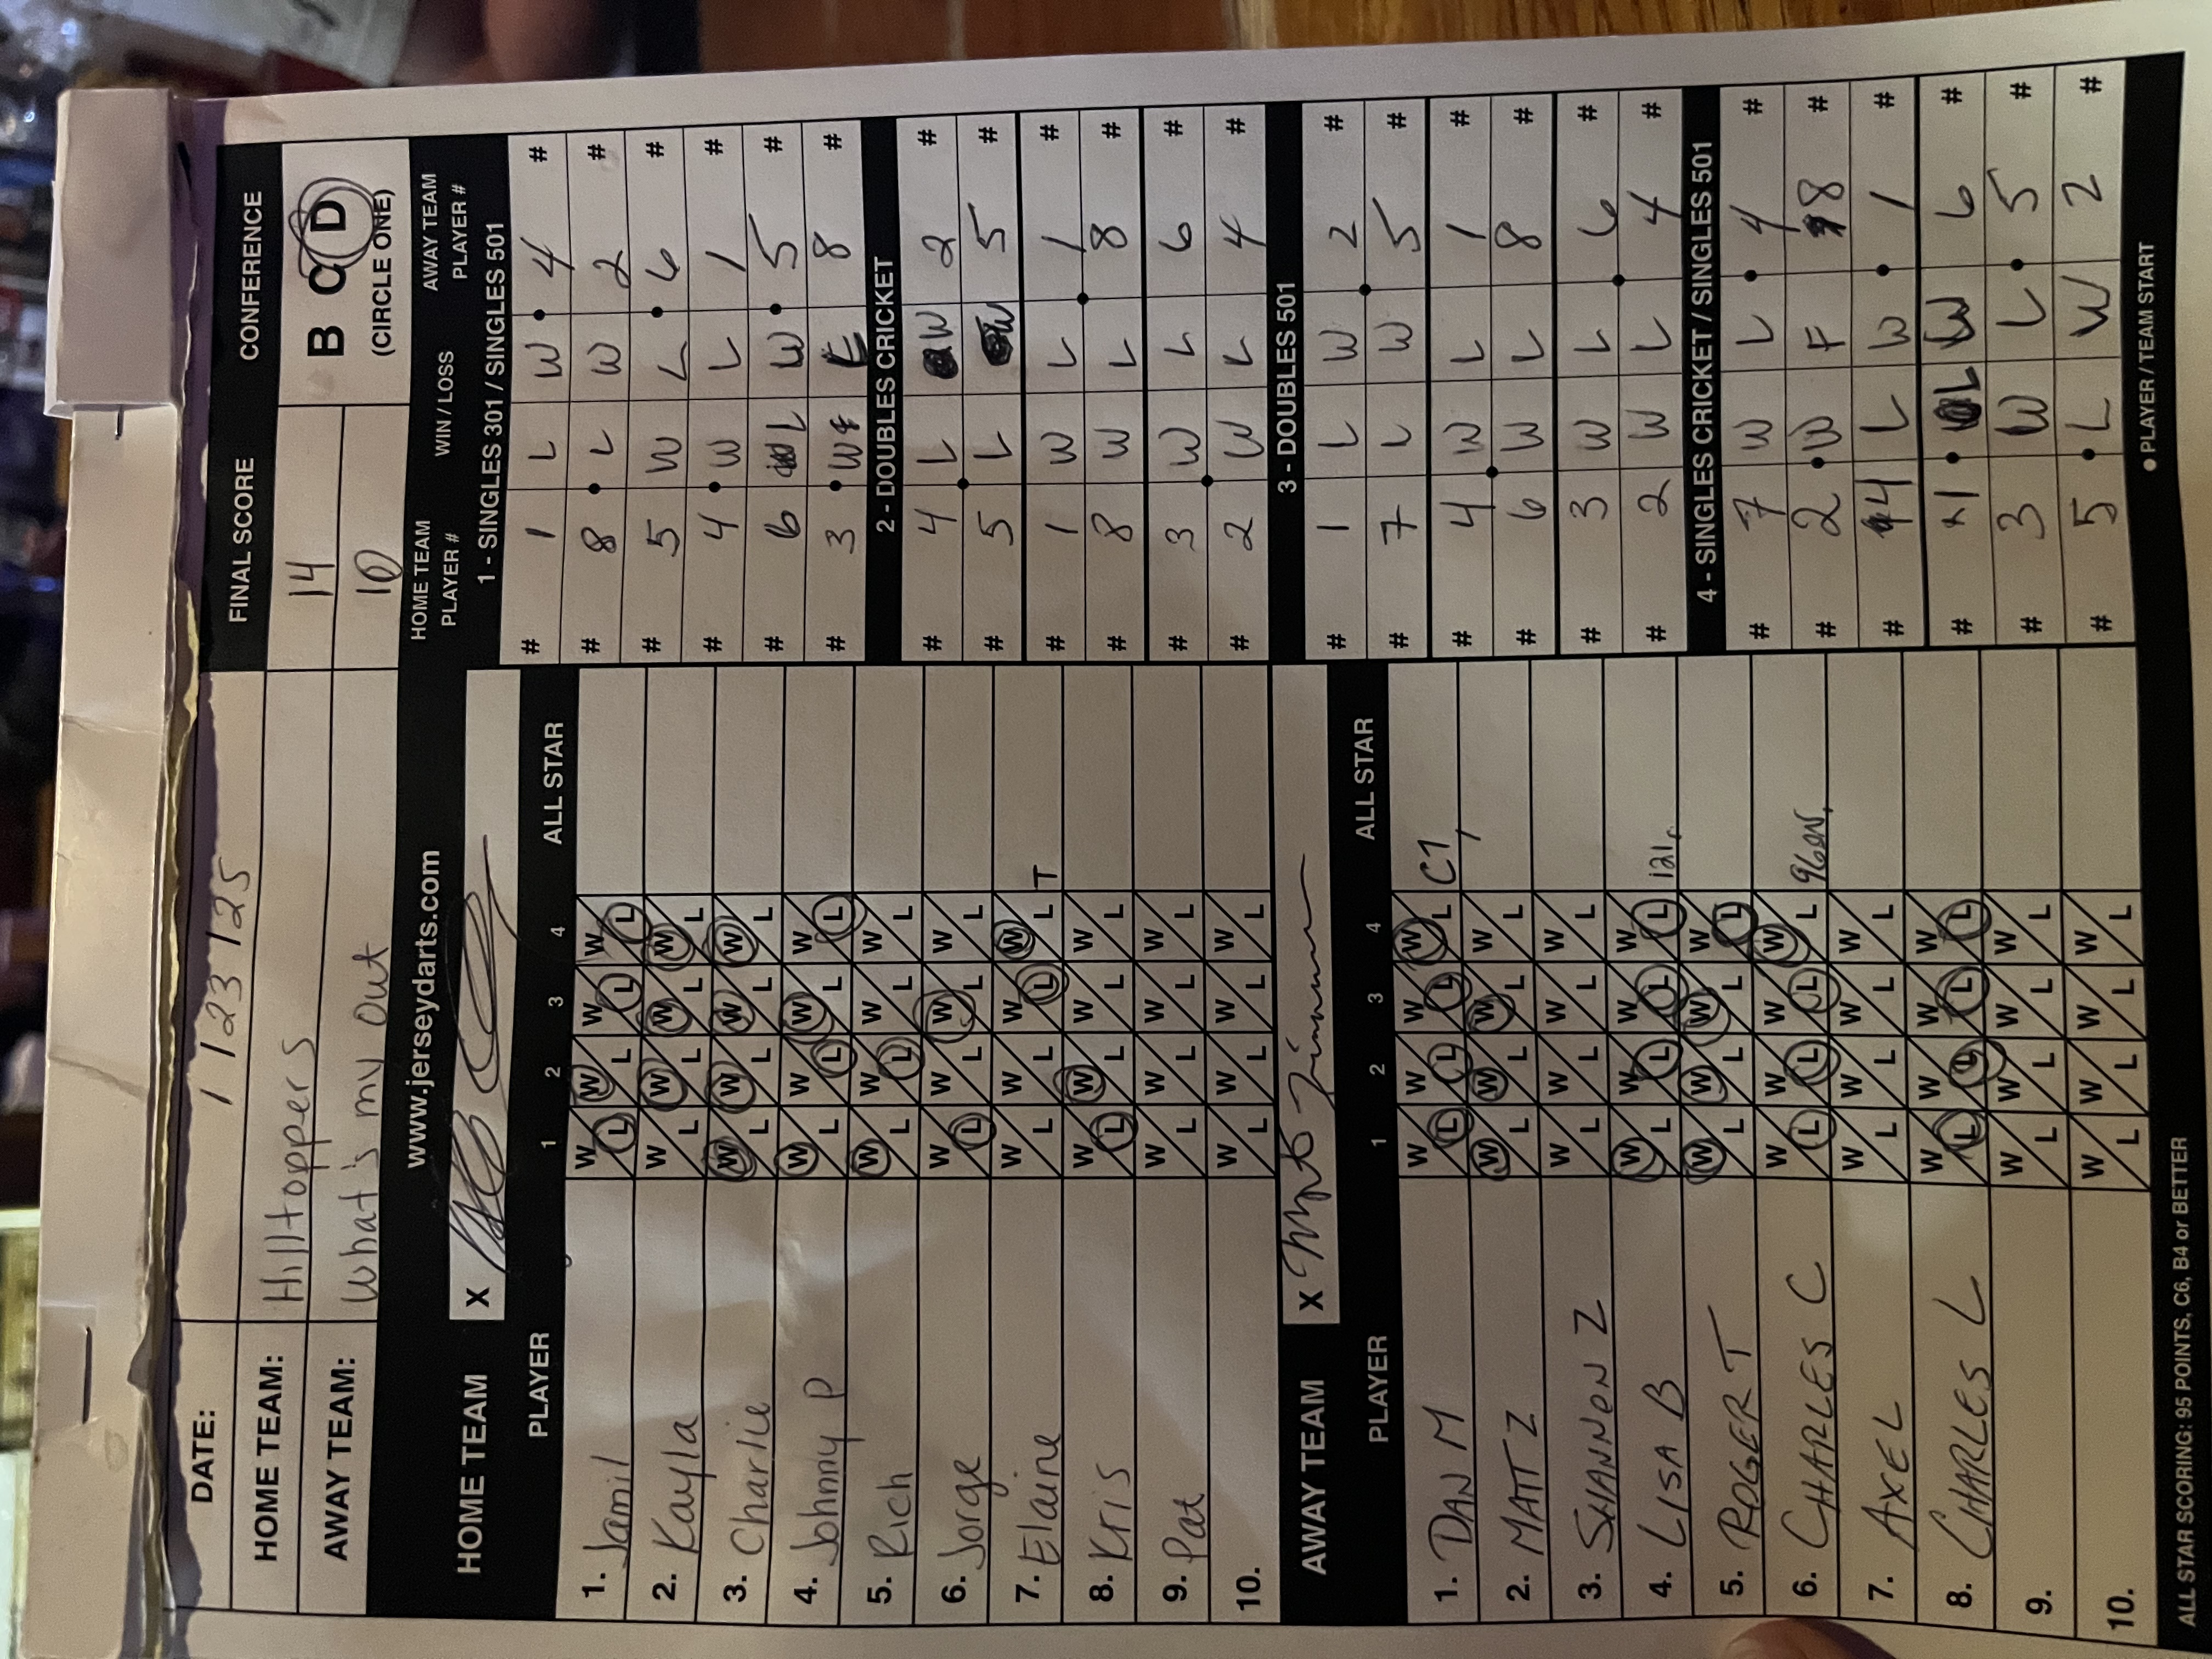 DATE: 1 / 23 / 25
FINAL SCORE CONFERENCE
HOME TEAM: Hilltoppers 14
AWAY TEAM: What's my out 10
B C D
(CIRCLE ONE)
www.jerseydarts.com
HOME TEAM X
PLAYER 1 2 3 4 ALL STAR
1. Jamil W L W L W L W L
2. Kayla W L W L W L W L
3. Charlie W L W L W L W L
4. Johnny P W L W L W L W L
5. Rich W L W L W L W L
6. Jorge W L W L W L W L
7. Elaine W L W L W L W L T
8. Kris W L W L W L W L
9. Pat W L W L W L W L
10. W L W L W L W L
AWAY TEAM X
PLAYER 1 2 3 4 ALL STAR
1. DAN M W L W L W L W L C7,
2. MATT Z W L W L W L W L
3. SHANNON Z W L W L W L W L
4. LISA B W L W L W L W L 121,
5. ROGER T W L W L W L W L
6. CHARLES C W L W L W L W L
7. AXEL W L W L W L W L
8. CHARLES L W L W L W L W L
9. W L W L W L W L
10. W L W L W L W L
ALL STAR SCORING: 95 POINTS, C6, B4 or BETTER
HOME TEAM PLAYER # WIN / LOSS AWAY TEAM PLAYER #
1 - SINGLES 301 / SINGLES 501
# 1 L W 4 #
# 8 L W 2 #
# 5 W L 6 #
# 4 W L 1 #
# 6 L W 5 #
# 3 W L 8 #
2 - DOUBLES CRICKET
# 4 L W 2 #
# 5 L W 5 #
# 1 W L 1 #
# 8 W L 8 #
# 3 W L 6 #
# 2 W L 4 #
3 - DOUBLES 501
# 1 L W 2 #
# 7 L W 5 #
# 4 W L 1 #
# 6 W L 8 #
# 3 W L 6 #
# 2 W L 4 #
4 - SINGLES CRICKET / SINGLES 501
# 7 W L 4 #
# 2 W F 8 #
# 4 L W 1 #
# 1 L W 6 #
# 3 W L 5 #
# 5 L W 2 #
● PLAYER / TEAM START